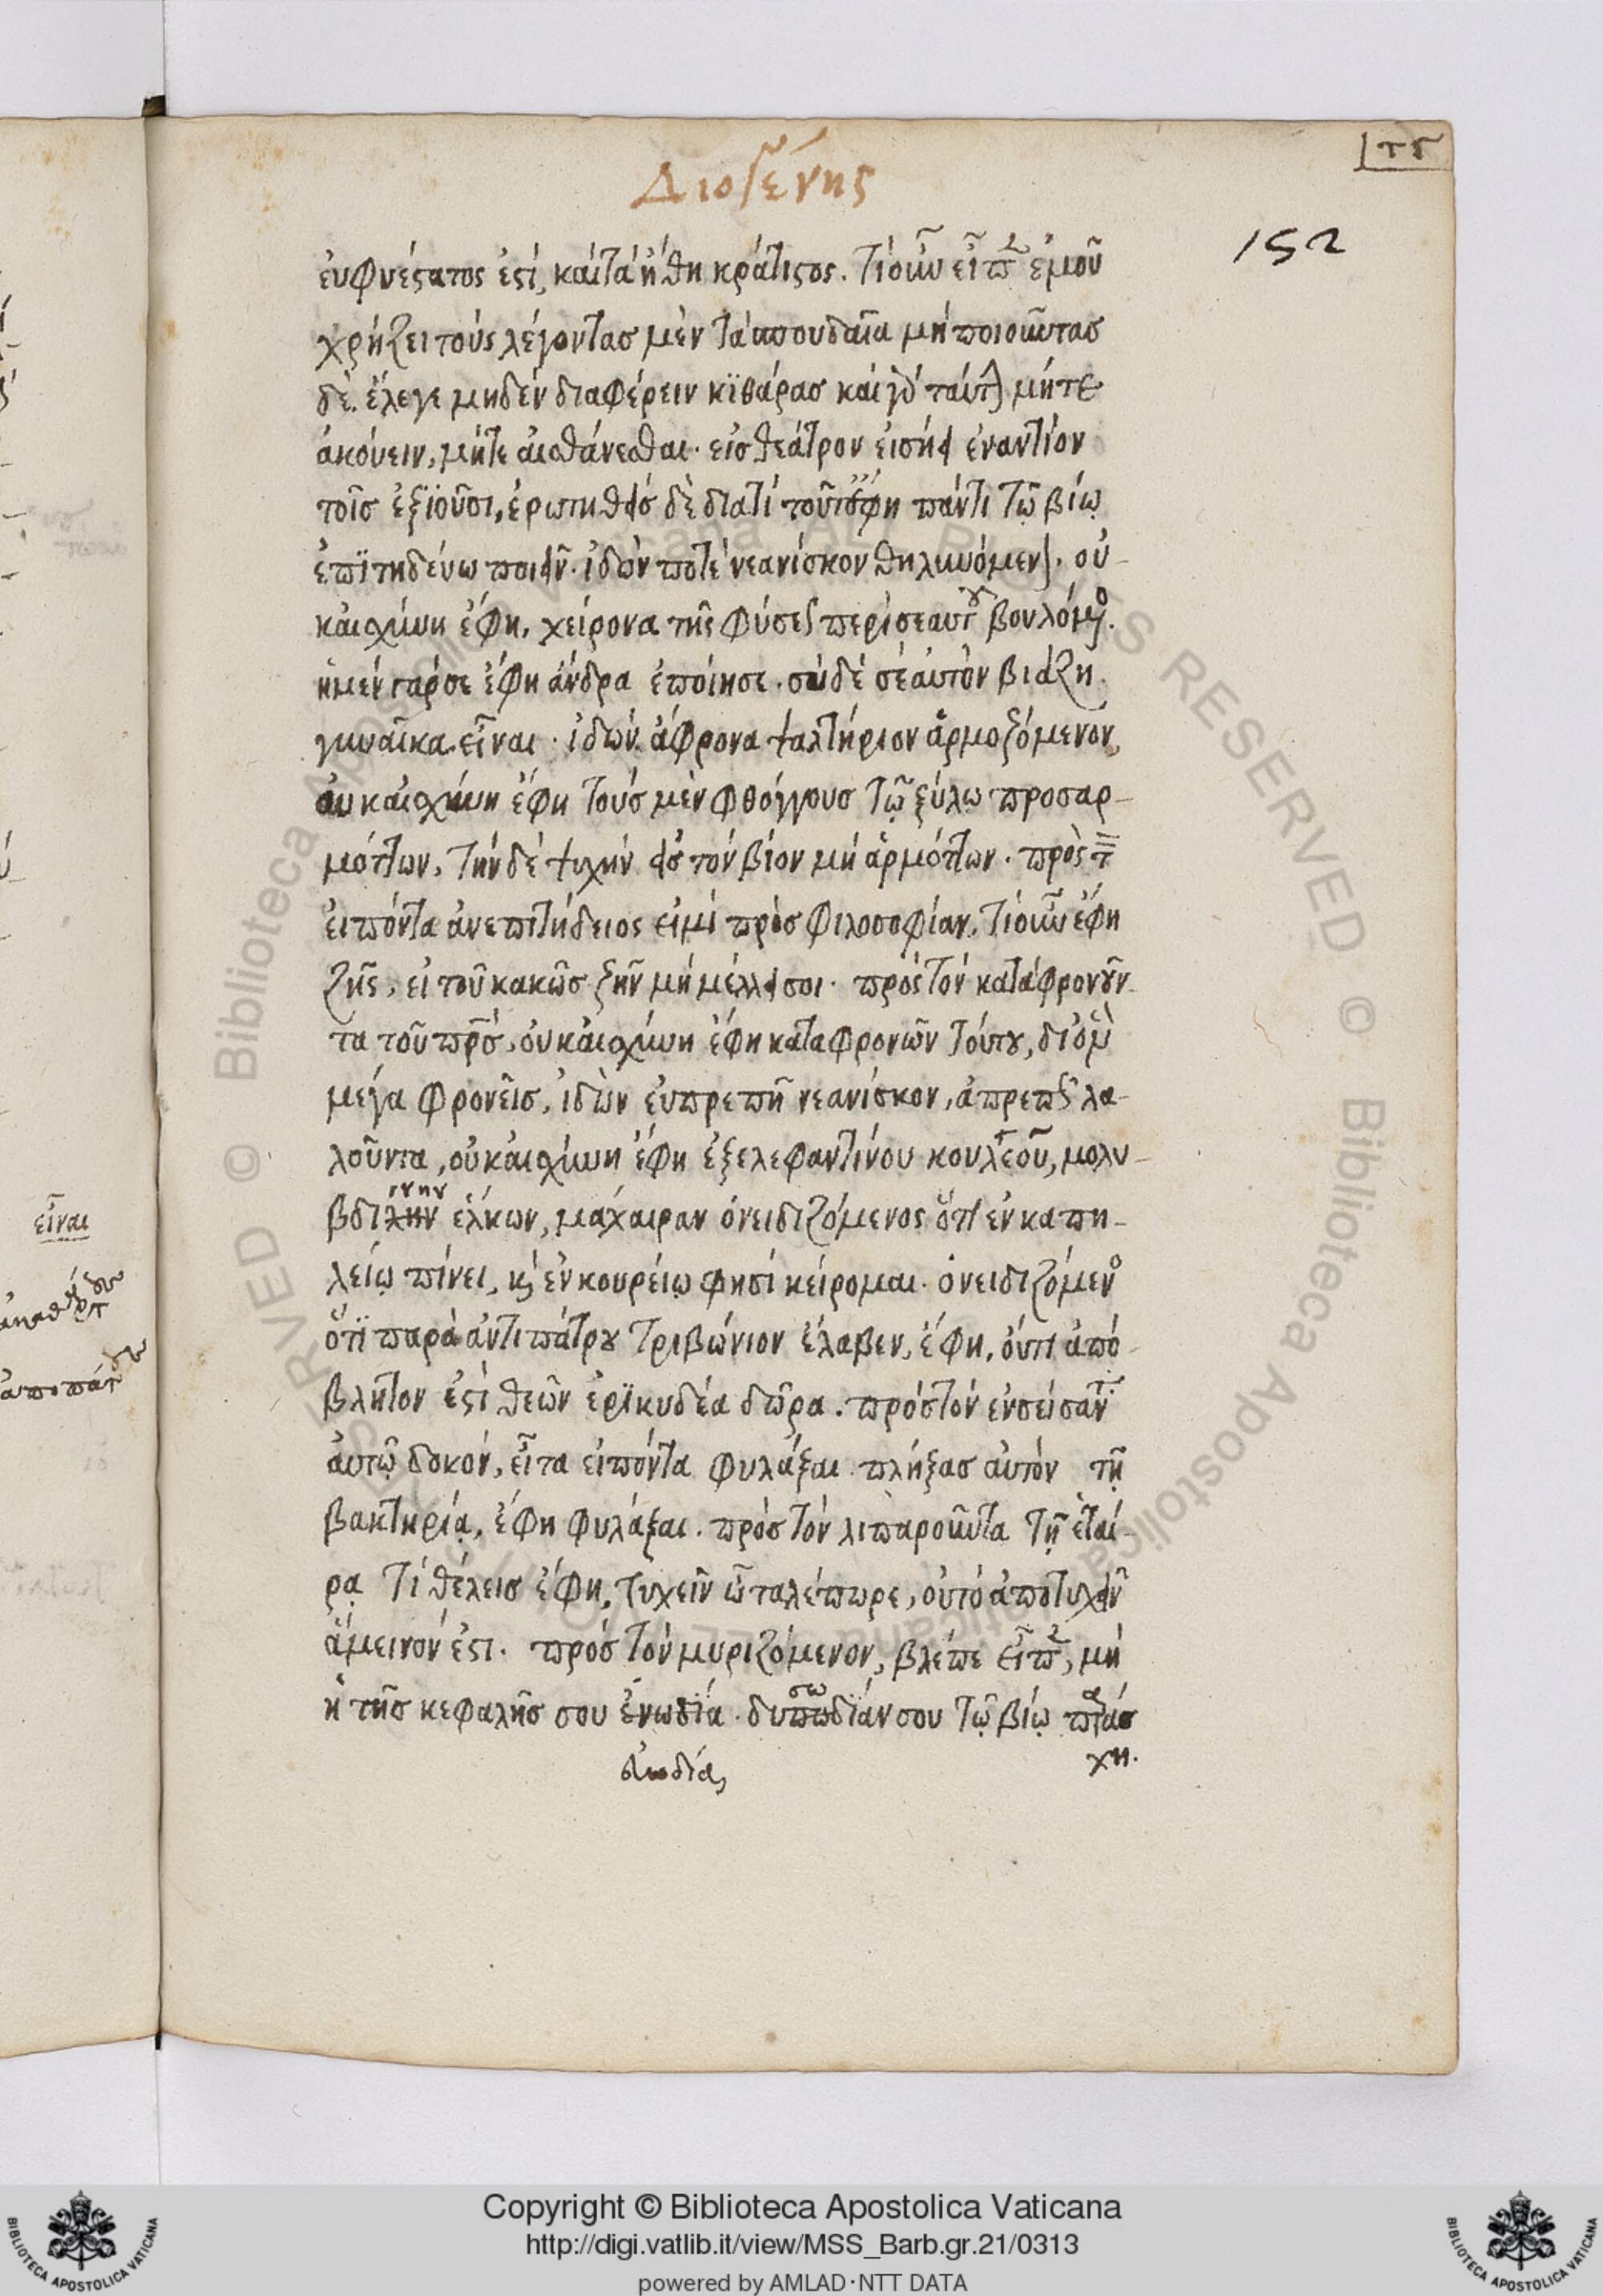 Διογένης
τγ
152
ἐυφυέστατος ἐστί, καὶ τὰ ἤθη κράτιστος. τί οὖν εἶπεν ἐμοῦ
χρήζει τοὺς λέγοντασ μὲν τὰ σπουδαῖα μὴ ποιοῦντασ
δὲ. ἔλεγε μηδὲν διαφέρειν κϊθάρασ καὶ γὰρ ταύτην μήτε
ἀκόυειν, μήτε ἀισθάνεσθαι. εἰσ θέατρον ἐισήει ἐναντίον
τοῖσ ἐξϊοῦσι, ἐρωτηθεὶσ δὲ διατί τοῦτο ἔφη πάντι τῷ βίῳ
ἐπϊτηδεύω ποιεῖν. ἰδὼν ποτὲ νεανίσκον θηλυνόμενον. οὐ-
κ ἀισχύνη ἔφη, χείρονα τῆς φύσεως περὶ σεαυτοῦ βουλόμενος.
ἡ μὲν γὰρ σε ἔφη ἄνδρα ἐποίησε. σὺ δὲ σὲ ἀυτὸν βιάζη
γυναῖκα εἶναι. ἰδὼν ἄφρονα ψαλτήριον ἁρμοζόμενον,
ὀυκ ἀισχύνη ἔφη τοὺσ μὲν φθόγγουσ τῷ ξύλῳ προσαρ-
μόττων, τὴν δὲ ψυχὴν εἰσ τὸν βίον μὴ ἁρμόττων. πρὸς τὸν
ἐιπόντα ἀνεπιτήδειος εἰμὶ πρὸσ φιλοσοφίαν. τί οὖν ἔφη
ζῆς, εἰ τοῦ κακῶσ ζῆν μὴ μέλλει σοι. πρὸς τὸν καταφρονοῦν-
τα τοῦ πατρόσ, ὀυκ ἀισχύνη ἔφη καταφρονῶν τούτου, δι' ὃν
μέγα φρονεῖσ. ἰδὼν ἐυπρεπῆ νεανίσκον, ἀπρεπῶς λα-
λοῦντα, οὐκ ἀισχύνη ἔφη ἐξ ελεφαντίνου κουλεοῦ, μολυ-
βδίνην ἕλκων, μάχαιραν ὀνειδιζόμενος ὅτι ἐν καπη-
λείῳ πίνει, κ̀ ἐν κουρείῳ φησὶ κείρομαι. ὀνειδιζόμενος
ὅτϊ παρὰ ἀντιπάτρου τριβώνιον ἔλαβεν, ἔφη, ὄυτι ἀπό-
βλητον ἐστὶ θεῶν ἐρϊκυδέα δῶρα. πρὸς τὸν ἐνσείσαντα
ἀυτῷ δοκόν, εἶτα εἰπόντα φυλάξαι πλήξασ αὐτὸν τῇ
βακτηρίᾳ, ἔφη φυλάξαι. πρὸσ τὸν λιπαροῦντα τῇ ἑταί-
ρᾳ τί θέλεισ ἔφη, τυχεῖν ὦ ταλέπωρε, οὗ τὸ ἀποτυχεῖν
ἄμεινόν ἐστι. πρὸσ τὸν μυριζόμενον, βλέπε εἶπεν, μὴ
ἡ τῆσ κεφαλῆσ σου ἐνωδϊά. δυσωδίαν σου τῷ βίῳ παράσ
χη.
εὐωδία,
εἶναι